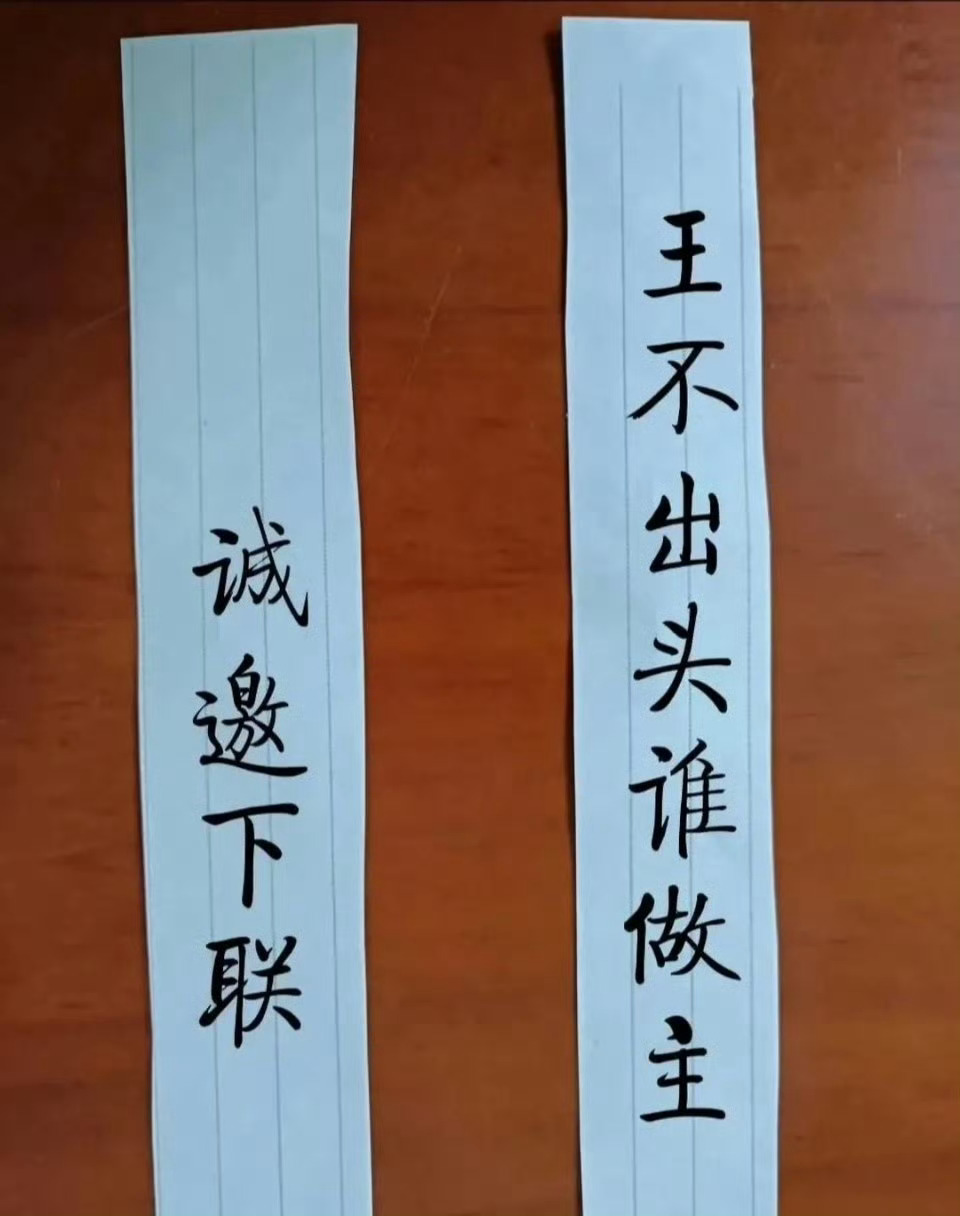 王不出头谁做主
诚邀下联